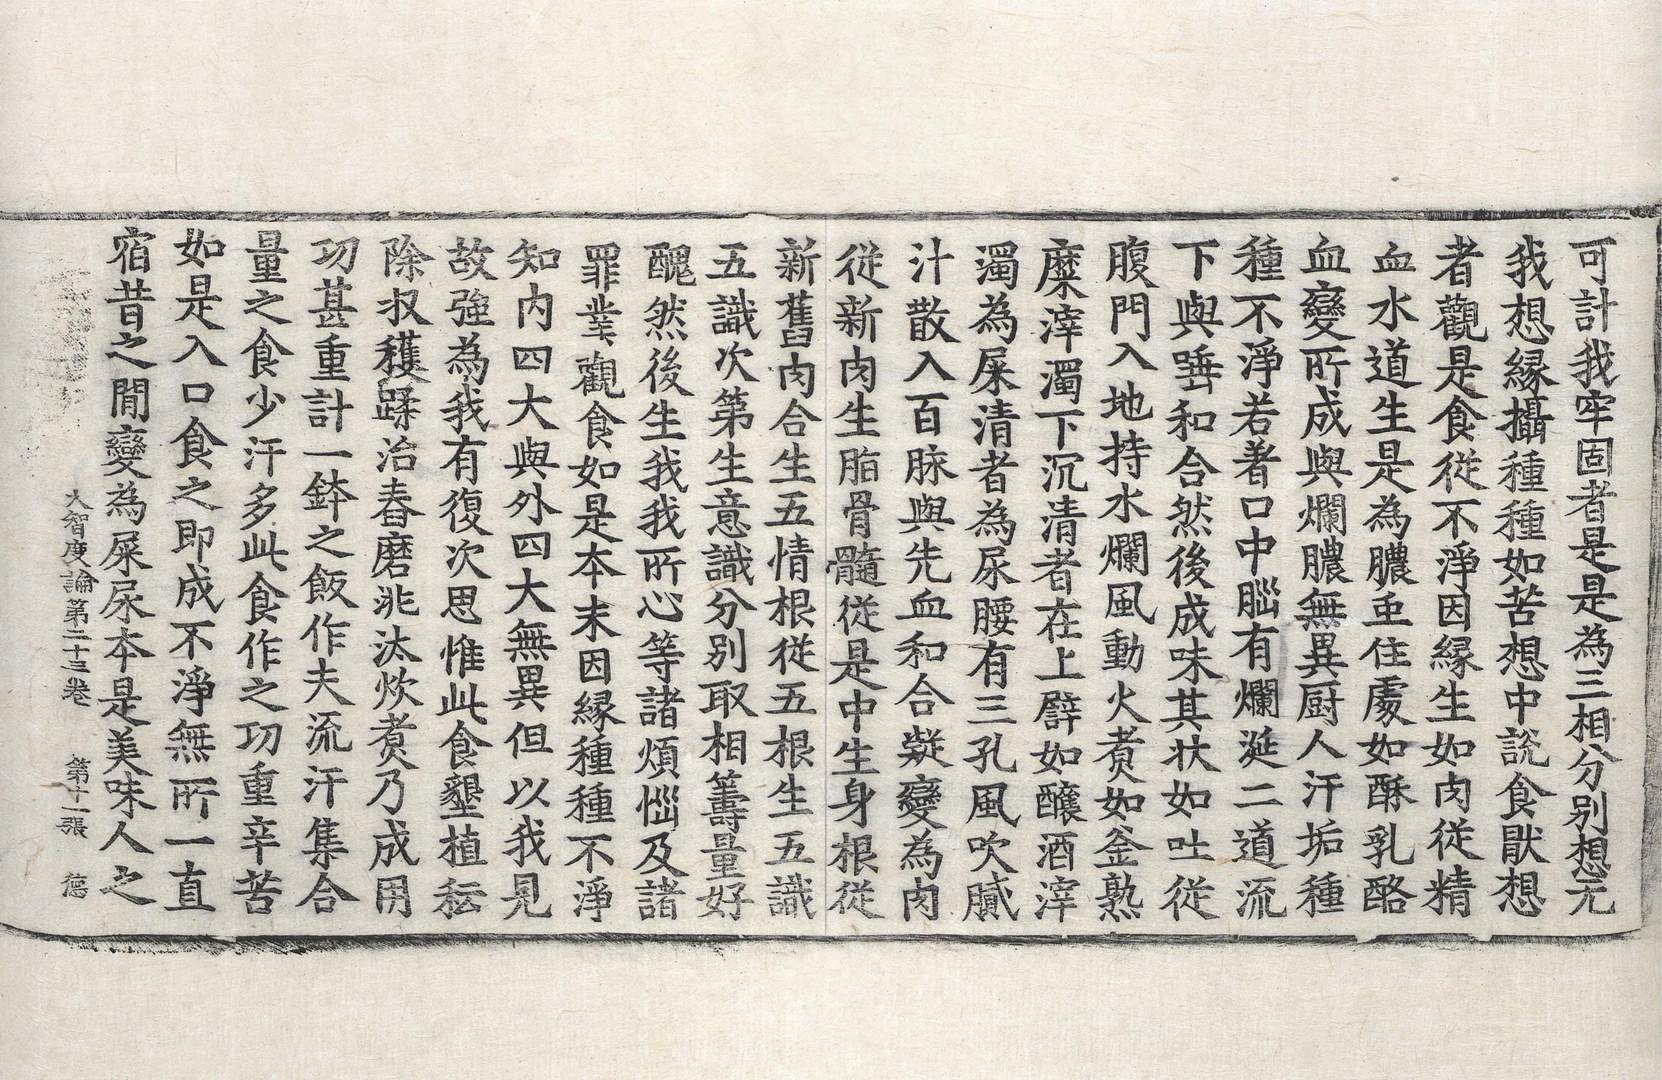 可計我牢固者是是為三相分別想无
我想緣攝種種如苦想中說食猒想
者觀是食從不淨因緣生如肉從精
血水道生是為膿虫住處如酥乳酪
血變所成與爛膿無異厨人汗垢種
種不淨若著口中腦有爛涎二道流
下與唾和合然後成味其狀如吐從
腹門入地持水爛風動火煑如釜熟
糜滓濁下沉清者在上譬如釀酒滓
濁為屎清者為尿腰有三孔風吹膩
汁散入百脉與先血和合凝變為肉
從新肉生脂骨髓從是中生身根從
新舊肉合生五情根從五根生五識
五識次第生意識分別取相籌量好
醜然後生我我所心等諸煩惱及諸
罪業觀食如是本末因緣種種不淨
知內四大與外四大無異但以我見
故強為我有復次思惟此食墾植耘
除收穫蹂治舂磨洮汰炊煑乃成用
功甚重計一鉢之飯作夫流汗集合
量之食少汗多此食作之功重辛苦
如是入口食之即成不淨無所一直
宿昔之間變為屎尿本是美味人之
大智度論第二十三卷 第十一張 德